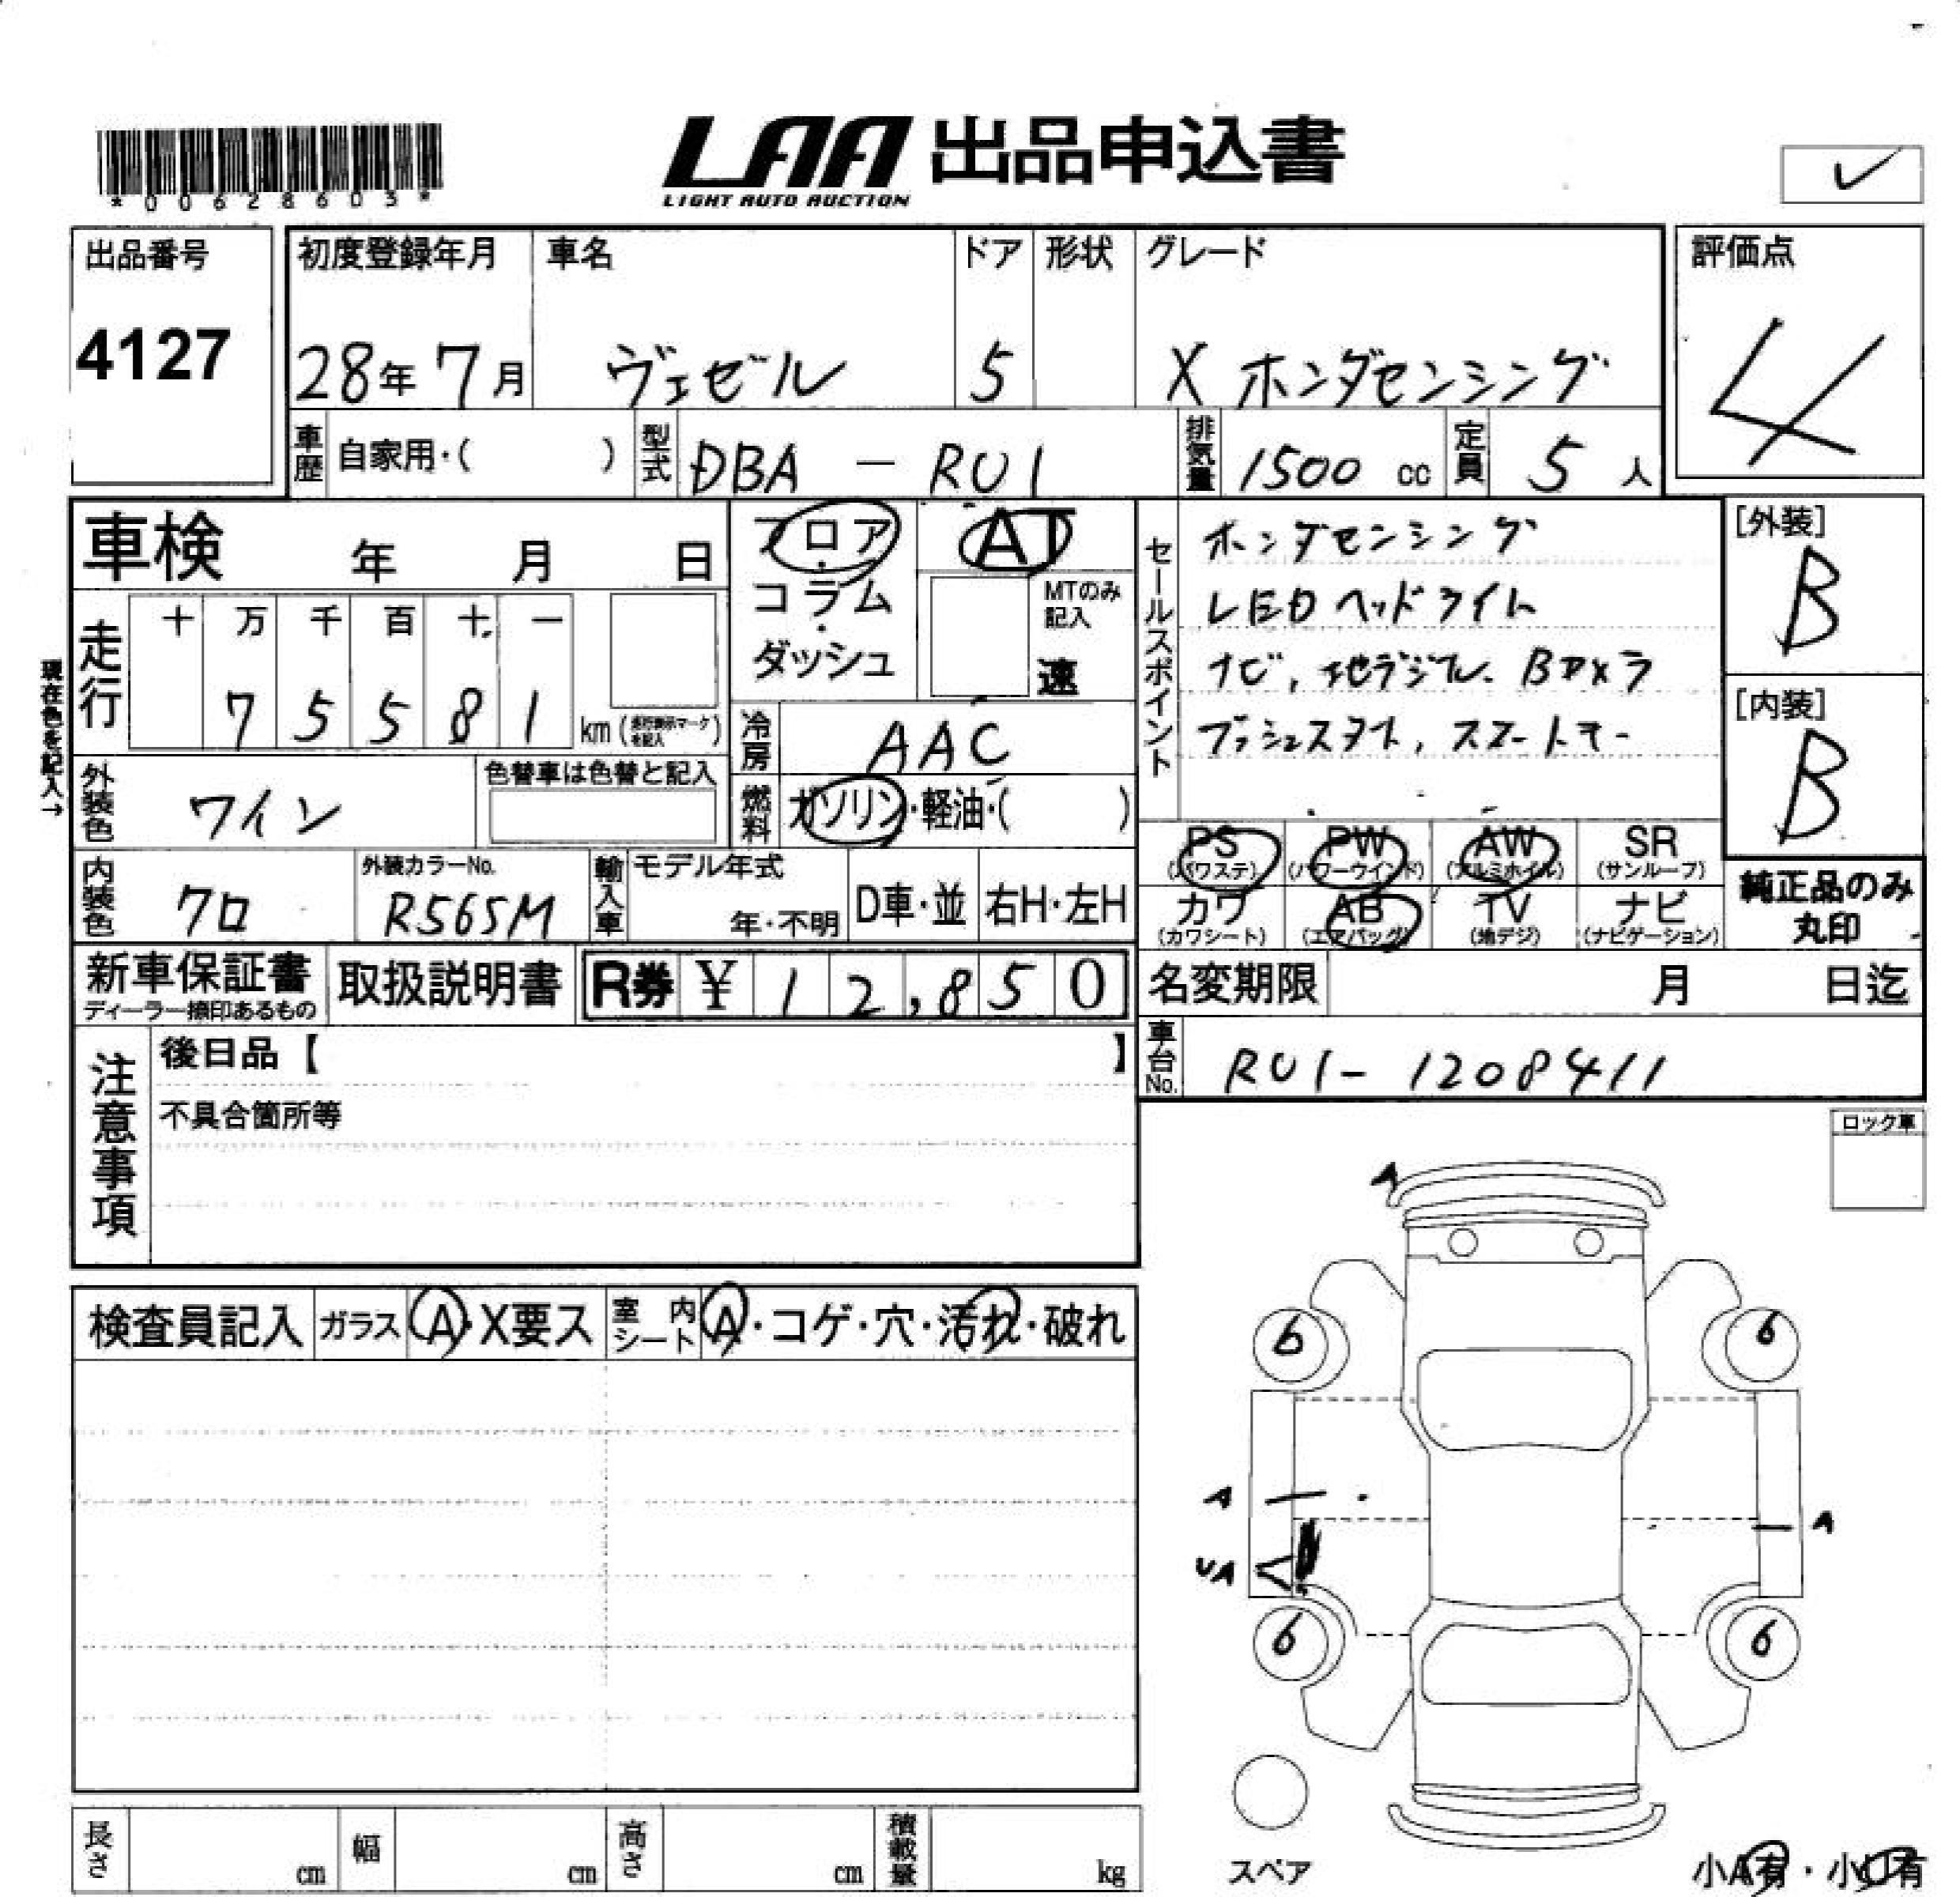 *00628603*
LAA 出品申込書
LIGHT AUTO AUCTION
出品番号
4127
初度登録年月 車名 ドア 形状 グレード
28年 7月 ヴェゼル 5 X ホンダセンシング
評価点
4
車歴 自家用・( ) 型式 DBA - RU1 排気量 1500 cc 定員 5 人
車検 年 月 日
フロア
コラム
ダッシュ
AT
MTのみ記入
速
セールスポイント
ホンダセンシング
LEDヘッドライト
ナビ, 地デジTV. Bカメラ
プッシュスタート, スマートキー
[外装]
B
[内装]
B
現在色を記入→
走行 十 万 千 百 十 一
7 5 5 8 1 km (走行表示マークを記入)
冷房 AAC
燃料 ガソリン・軽油・( )
外装色 ワイン 色替車は色替と記入
内装色 クロ 外装カラーNo. R565M
輸入車 モデル年式 年・不明 D車・並 右H・左H
PS (パワステ) PW (パワーウインド) AW (アルミホイル) SR (サンルーフ)
カワ (カワシート) AB (エアバッグ) TV (地デジ) ナビ (ナビゲーション)
純正品のみ丸印
新車保証書
ディーラー捺印あるもの
取扱説明書 R券 ¥ 12,850
名変期限 月 日迄
車台No. RU1-1208411
注意事項
後日品【 】
不具合箇所等
ロック車
検査員記入 ガラス A・X要ス 室内シート A・コゲ・穴・汚れ・破れ
A
6 6
A
A
UA
6 6
スペア
小A有・小U有
長さ cm 幅 cm 高さ cm 積載量 kg